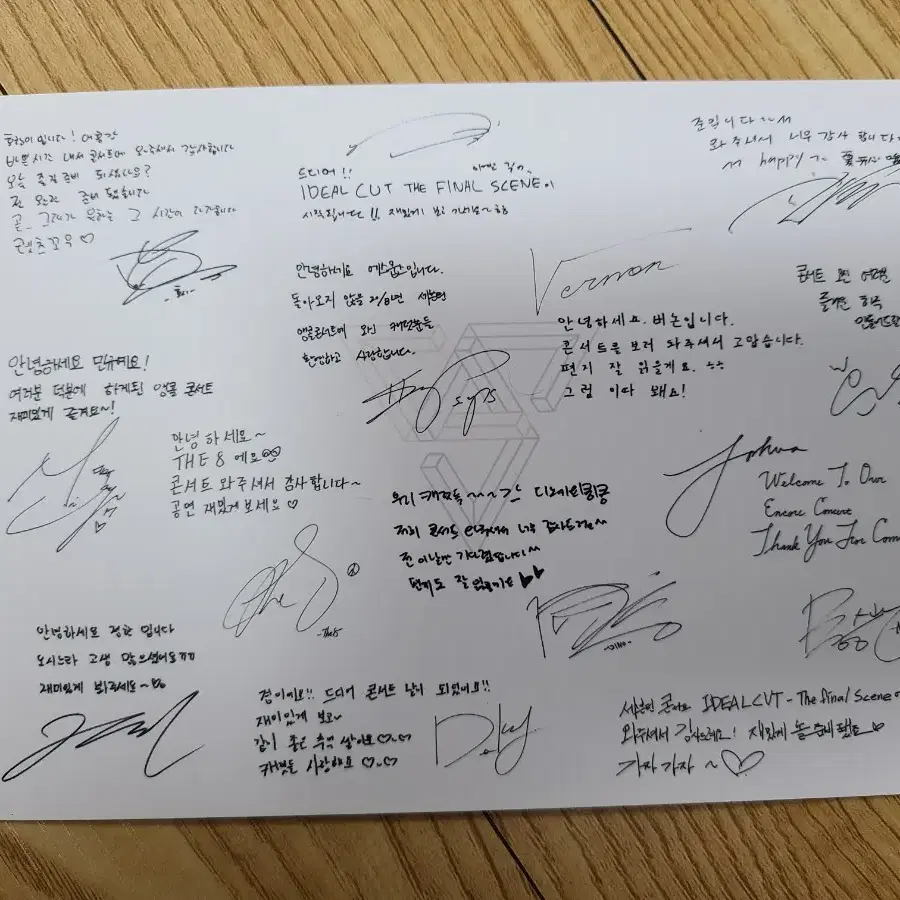 바쁜시간 내서 콘서트에 와주셔서 감사합니다
오늘 즐길 준비 되셨나요?
전 완전 준비 됐습니다
그 시간이 다가옵니다
드디어!!
IDEAL CUT THE FINAL SCENE이
시작됩니다!!
준입니다
와 주셔서 너무 감사 합니다
happy
안녕하세요 에스쿱스입니다.
돌아오지 않을 2018년 세븐틴
앵콜콘서트에 오신 캐럿분들
환영하고 사랑합니다.
S.Coups
Vernon
안녕하세요. 버논입니다.
콘서트를 보러 와주셔서 고맙습니다.
편지 잘 읽을게요.
그럼 이따 봬요!
콘서트 오신 여러분
즐거운 하루
안녕하세요 민규예요!
여러분 덕분에 하게된 앵콜 콘서트
재미있게 즐겨요~!
안녕 하세요~
THE 8 에요
콘서트 와주셔서 감사합니다~
공연 재밌게 보세요♡
The 8
-The8-
우리 캐럿둘~~~
전 이날만 기다렸습니다^^
편지도 잘 읽을게요
-DINO-
Joshua
Welcome To Our
Encore Concert
Thank You For Com
안녕하세요 정한 입니다
오시느라 고생 많으셨어요ㅠㅠ
재미있게 봐주세요~
겸이에요!! 드디어 콘서트 날이 되었어요!!
재미있게 보고~
같이 좋은 추억 쌓아요♡~♡
캐럿들 사랑해요 ♡~♡
Dokyeom
세븐틴 콘서트 IDEAL CUT - The final Scene에
와주셔서 감사드려요! 재밌게 놀 준비 됐죠
가자 가자 ~♡